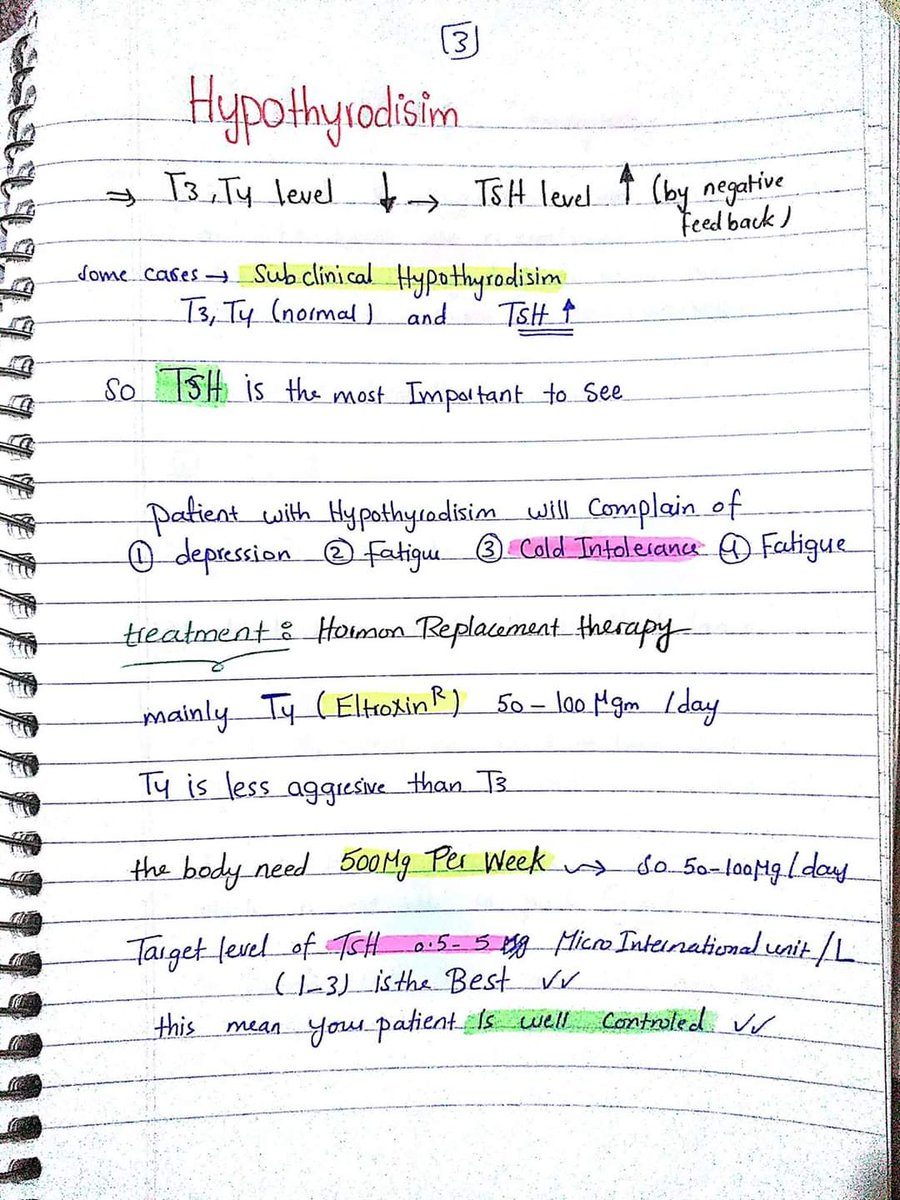 3
Hypothyrodisim
⇒ T3, T4 level ↓ → TSH level ↑ (by negative
feedback)
some cases → Subclinical Hypothyrodisim
T3, T4 (normal) and TSH ↑
so TSH is the most Important to see
patient with Hypothyrodisim will complain of
① depression ② Fatigu ③ Cold Intolerance ④ Fatigue
treatment: Hormon Replacement therapy
mainly T4 (Eltroxin R) 50-100 Mgm /day
T4 is less aggresive than T3
the body need 500Mg Per Week ⇝ so 50-100Mg/day
Target level of TSH 0.5-5 Micro International unit/L
(1-3) is the Best ✓✓
this mean your patient Is well controled ✓✓